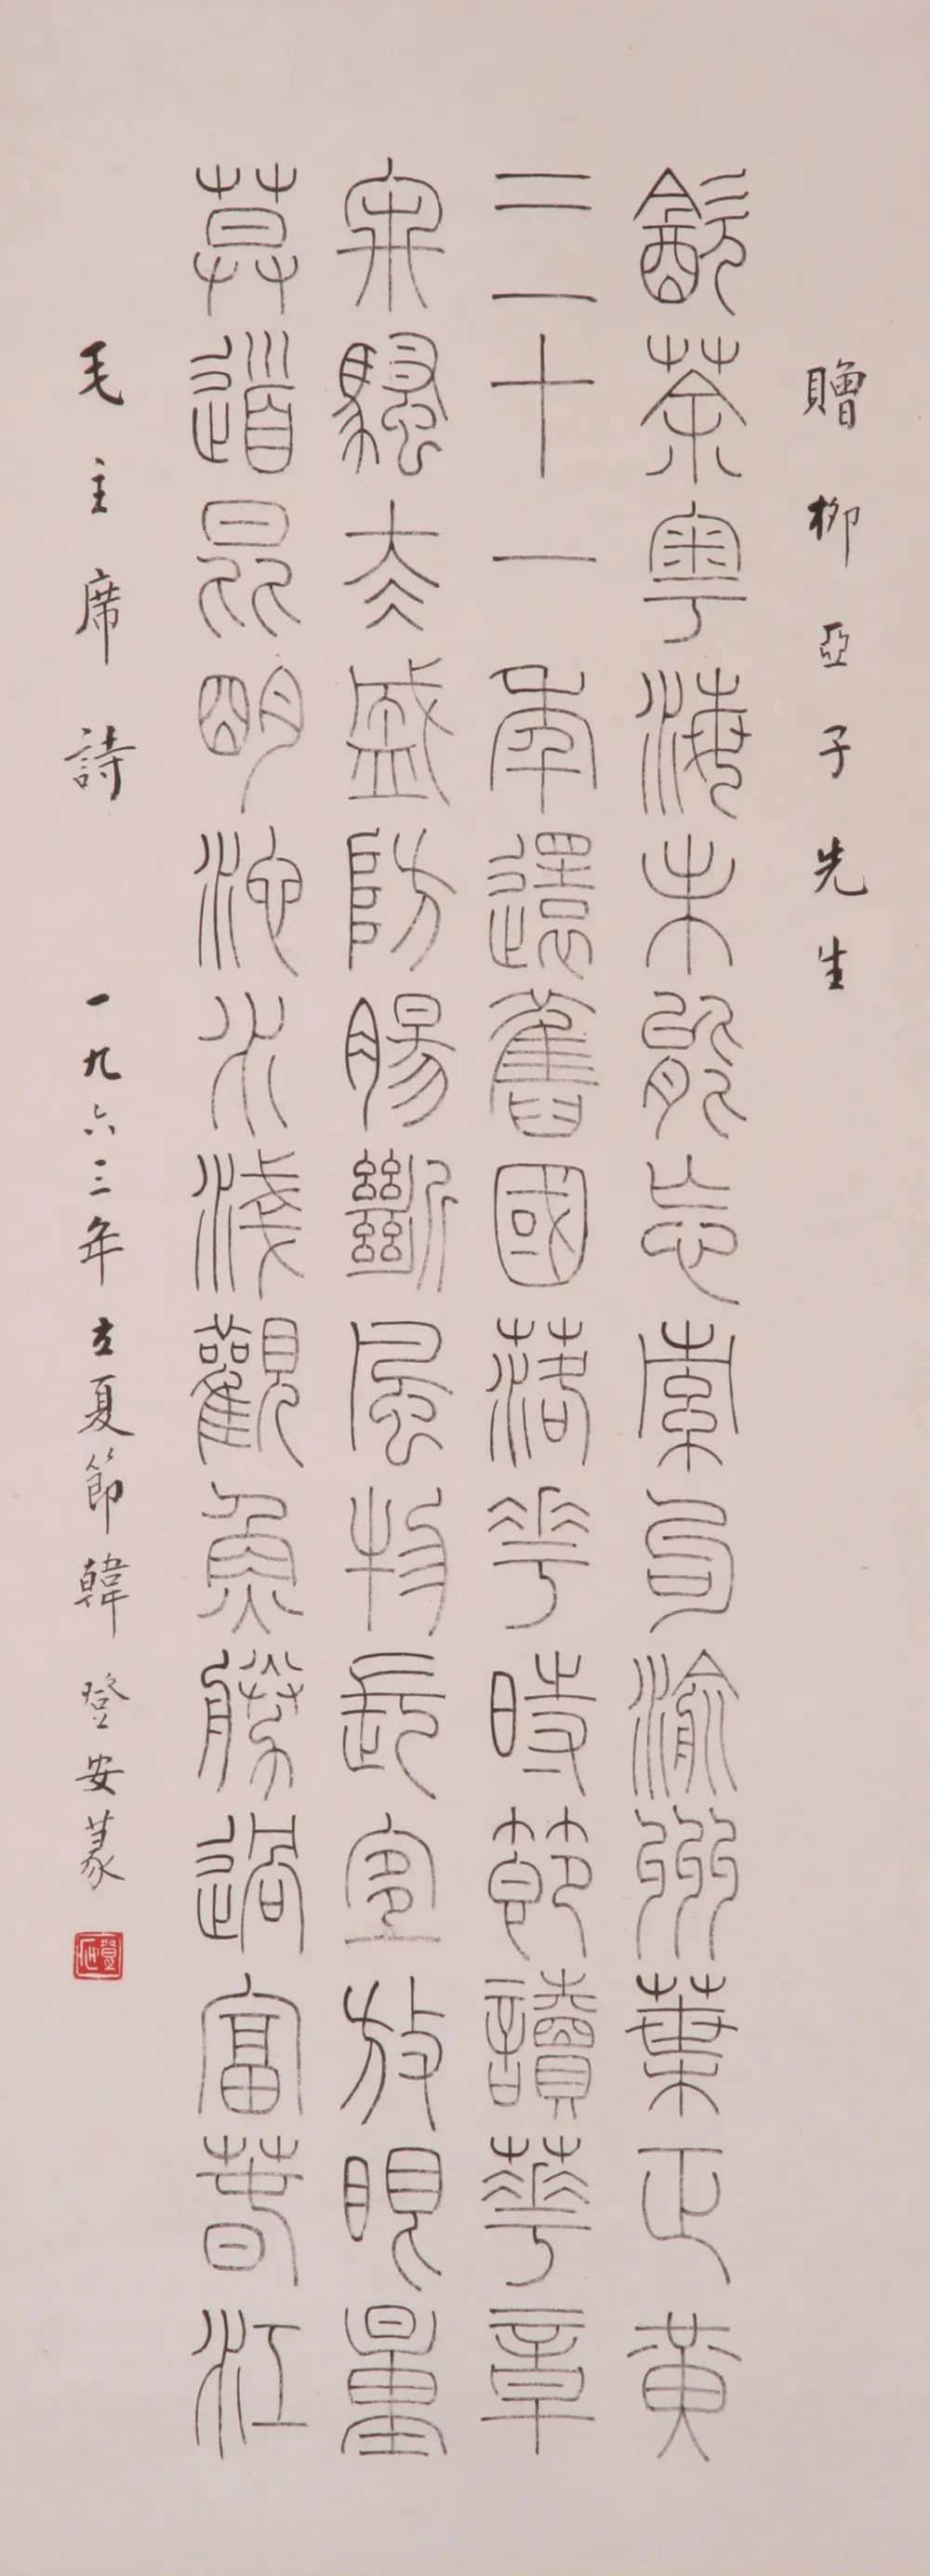 贈柳亞子先生
飲茶粵海未能忘索句渝州葉正黃
三十一年還舊國落花時節讀華章
牢騷太盛防腸斷風物長宜放眼量
莫道昆明池水淺觀魚勝過富春江
毛主席詩 一九六三年立夏節韓登安篆